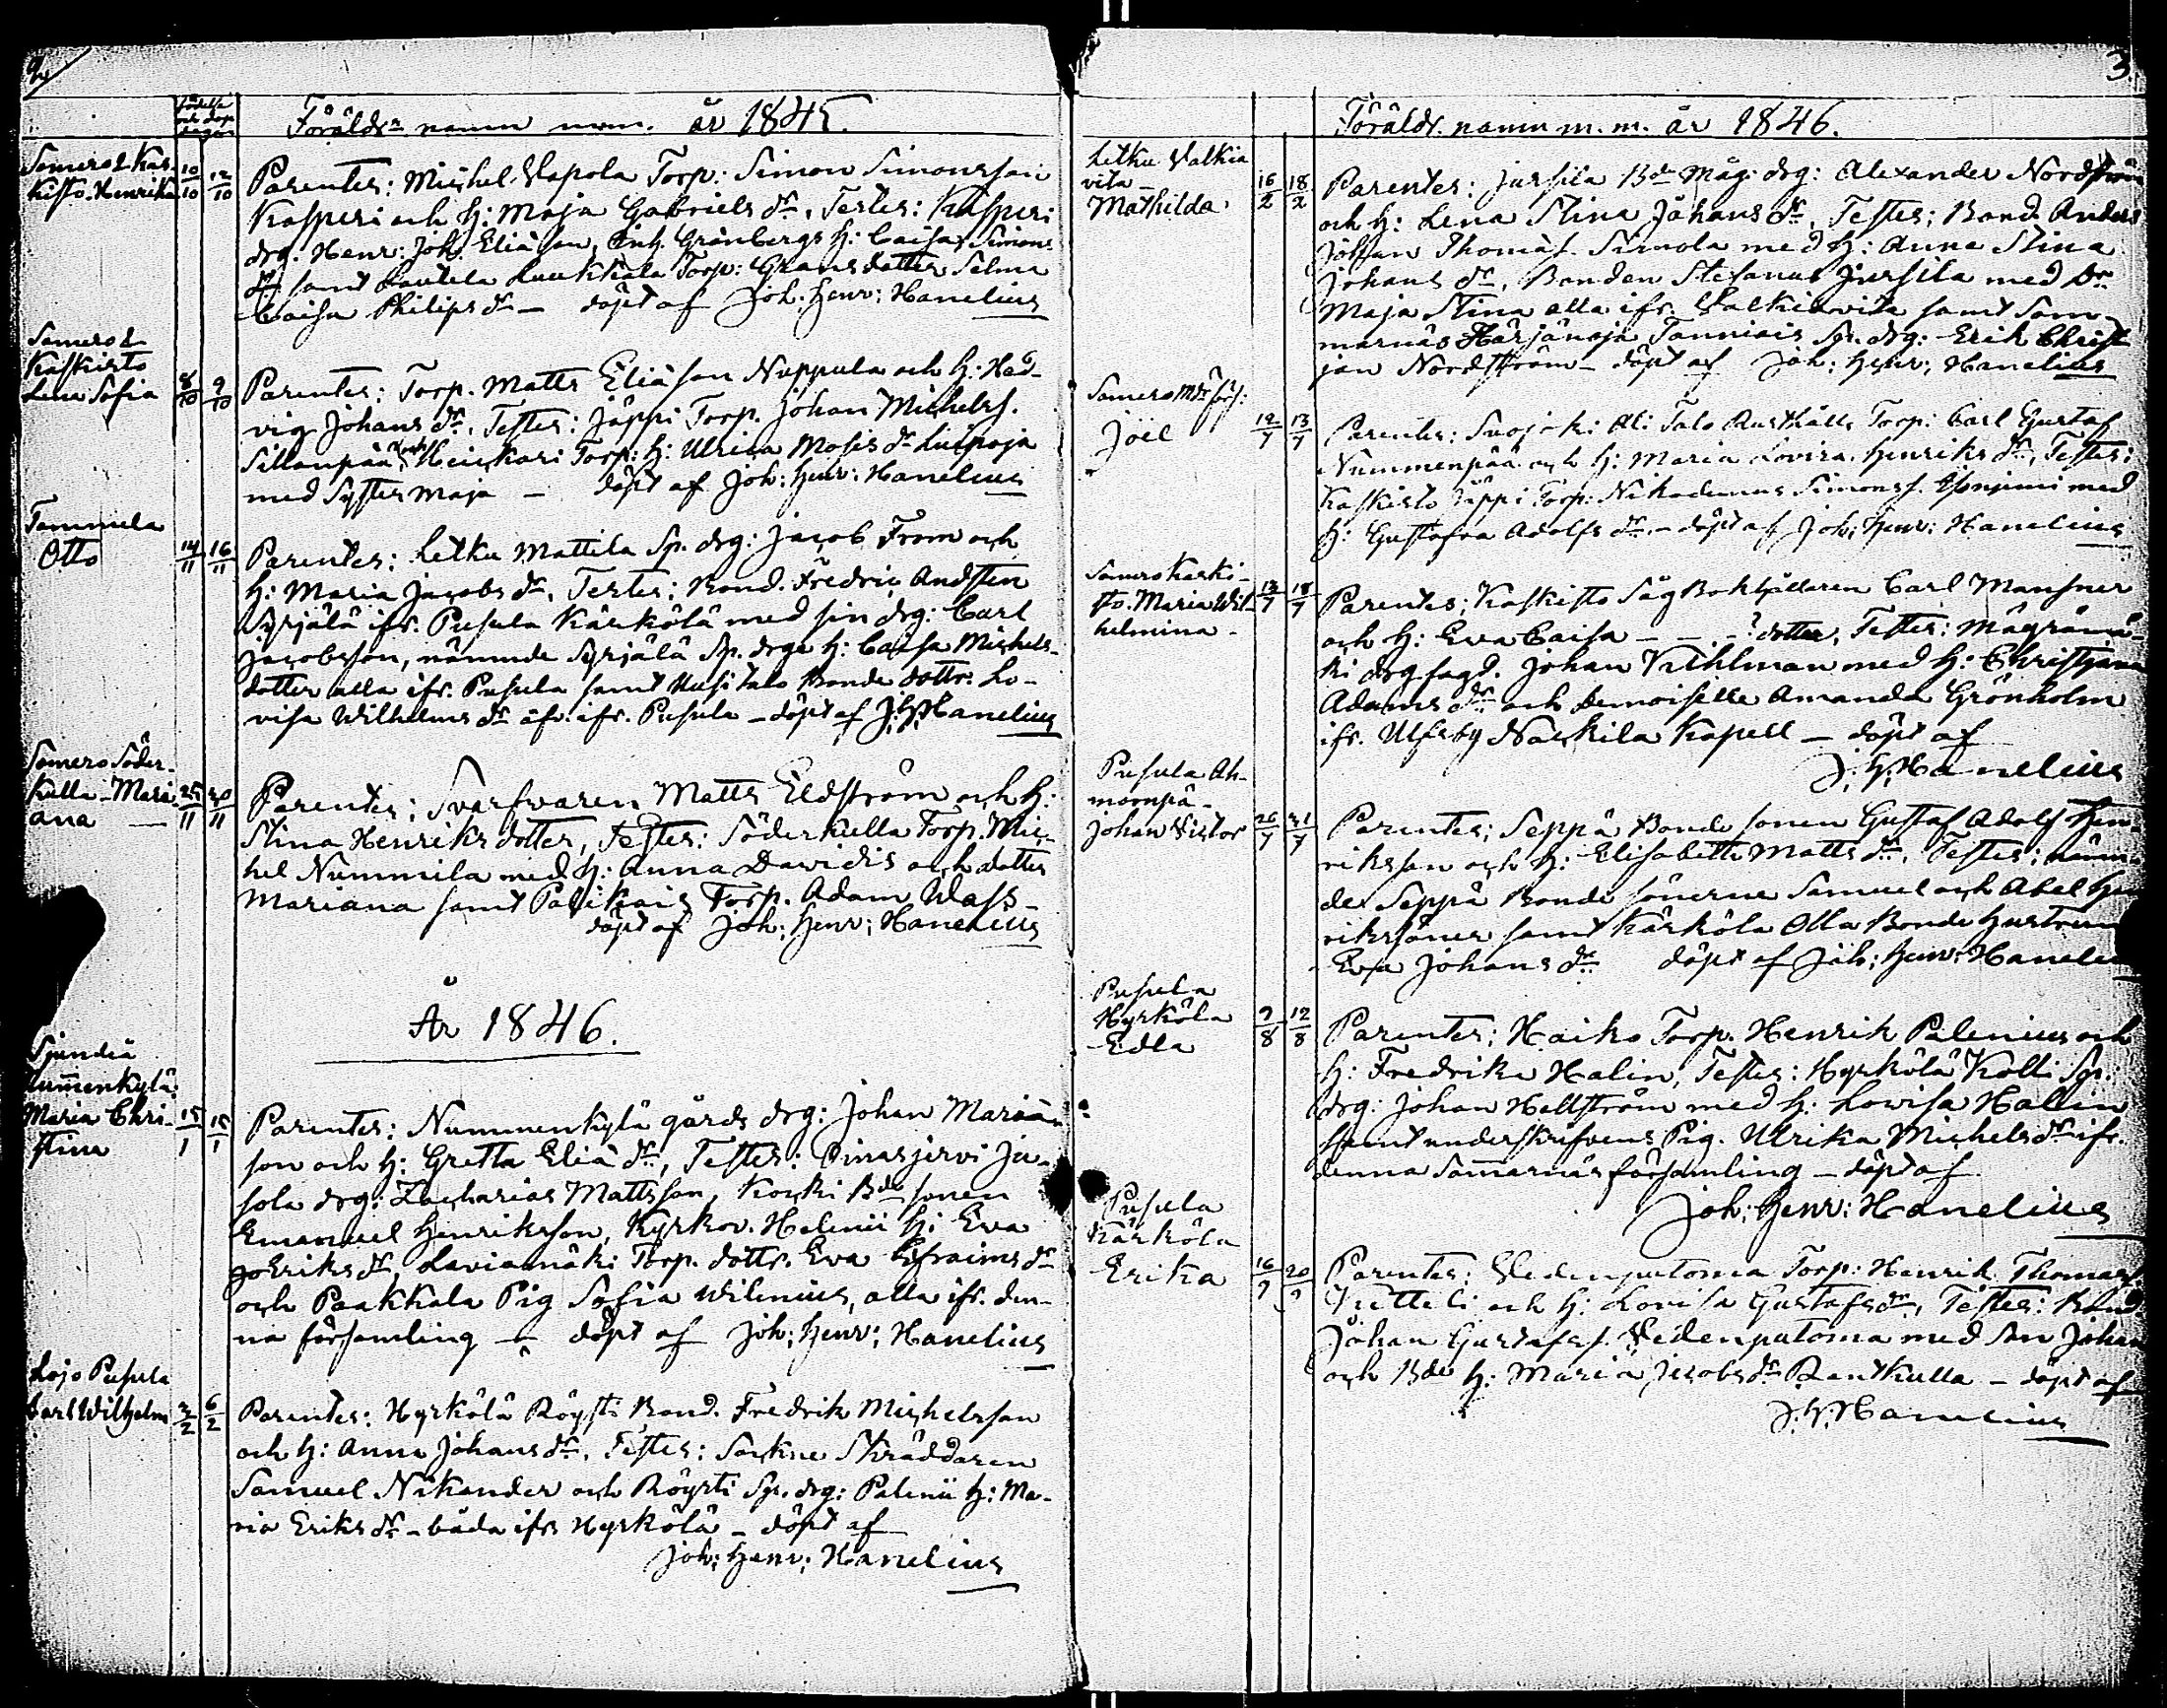 2
födelse
och dop
dagar
Föräldrs namn m.m. år 1845.
Somero & Kas-
kisto. Henrika 10/10 12/10
Parentes: Michel Uapola Torp: Simon Simonsson
Kasperi och h: Maja Gabriels dr. Testes: Kasperi
drg. Henr: Joh. Eliäson, Inh. Grönbergs h: Caisa Simons
dr samt Lautela Luukkala Torp: Grans dotter Selma
Caisa Philips dr — döpt af Joh: Henr: Hanelius
Somero &
Kaskisto
Lena Sofia 8/10 9/10
Parentes: Torp. Matts Eliäson Nuppula och h: Hed-
vig Johans dr. Testes: Jäppi Torp. Johan Michelss.
Sillanpää och Heickari Torp: h: Ulrica Mosis dr Luipoja
med Syster Maja — döpt af Joh: Henr: Hanelius
Tammela
Otto 14/11 16/11
Parentes: Letku Mattila Sp. drg: Jacob From och
h: Maria Jacobs dr, Testes: Bond. Fredric Andsten
Syrjälä ifr. Pusula Kärkölä med sin drg: Carl
Jacobsson, nämnde Syrjälä Sp. drgs h: Caisa Michels-
dotter alla ifr. Pusula samt Uusi talo Bonde dottr: Lo-
visa Wilhelms dr äfv. ifr. Pusula — döpt af J: H: Hanelius
Somero Söder-
kulla — Mari-
ana — 25/11 30/11
Parentes: Svarfvaren Matts Eldström och h:
Stina Henriks dotter, Testes: Söderkulla Torp. Mic-
hel Nummila med h: Anna Davidis och dotter
Mariana samt Palikais Torp. Adam Wass —
döpt af Joh: Henr: Hanelius
År 1846.
Sjundeå
Nummenkylä:
Maria Chri-
stina 15/1 15/1
Parentes: Nummenkylä gårds drg: Johan Mariän-
son och h: Gretta Eliä dr, Testes: Oinasjervi Ju-
sola drg: Zacharias Mattsson, Kouki Bde sonen
Emanuel Henriksson, Kyrkov. Helenii h: Eva
Eriks dr, Laviamäki Torp. dottr. Eva Efraims dr
och Paakkala Pig Sofia Wilenius, alla ifr. den-
na församling — döpt af Joh: Henr: Hanelius
Lojo Pusula
Carl Wilhelm 3/2 6/2
Parentes: Hyrkölä Röysti Bond. Fredrik Michelsson
och h: Anna Johans dr. Testes: Sockne Skräddaren
Samuel Nikander och Röysti Sp. drg: Palenii h: Ma-
ria Eriks dr — båda ifr Hyrkölä — döpt af
Joh: Henr: Hanelius
3
Föräldr. namn m.m. år 1846.
Letku Valkia
vita —
Mathilda 16/2 18/2
Parentes: Jursila Bde Måg. drg: Alexander Nordström
och h: Lena Stina Johans dr, Testes: Bond. Anders
Johan Thomäs. Simola med h: Anna Stina
Johans dr, Bonden Stefanus Jursila med dr
Maja Stina alla ifr. Valkiavita samt Som-
marnäs Härjänoja Tanniais Sp. drg: Erik Christ
jan Nordström — döpt af Joh: Henr: Hanelius
Somero Mdr förs:
Joel 12/7 13/7
Parentes: Suojoki Ali Talo Rusthålls Torp: Carl Gustaf
Nummenpää och h: Maria Lovisa Henriks dr, Testes:
Kaskisto Jäppi Torp: Nikodemus Simonss. med
h: Gustafva Adolfs dr — döpt af Joh: Henr: Hanelius
Somero Kaski-
sto. Maria Wil-
helmina — 13/7 18/7
Parentes: Kaskisto Såg Bokhållaren Carl Mansner
och h: Eva Caisa — — ? dotter, Testes: Mägrämä-
ki drg fagd. Johan Kihlman med h: Christjana
Adams dr och Demoiselle Amanda Grönholm
ifr. Ulfsby Nackila Kapell — döpt af
J: H: Hanelius
Pusula Ah-
monpä —
Johan Victor 26/7 31/7
Parentes: Seppä Bonde sonen Gustaf Adolf Hen-
riksson och h: Elisabetta Matts dr, Testes: nämn-
de Seppä Bonde sönerne Samuel och Abel Hen
riksöner samt Kärköla Olla Bonde hustrun
Eva Johans dr döpt af Joh: Henr: Hanelius
Pusula
Hyrköla
Edla 9/8 12/8
Parentes: Haiko Torp. Henrik Palenius och
h: Fredrika Halin, Testes: Hyrkölä Kolli Sp.
drg: Johan Hellström med h: Lowisa Hallin
samt underskrifvens Pig. Ulrika Michels dr ifr.
denna Sommarnäs församling — döpt af
Joh: Henr: Hanelius
Pusula
Kärköla
Erika 16/9 20/9
Parentes: Vedenputoma Torp: Henrik Thomäss.
och h: Lovisa Gustafs dr, Testes: Bond.
Johan Gustafss. Vedenputoma med son Johan
och Bde h: Maria Jacobs dr Rantkulla — döpt af
J: H: Hanelius